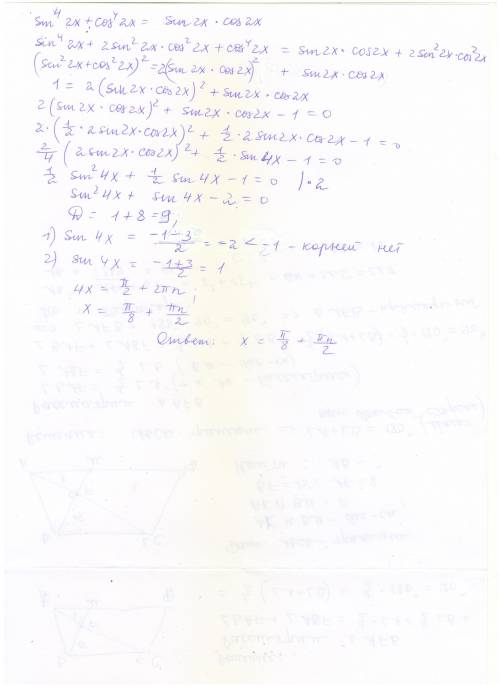 sin⁴ 2x + cos⁴ 2x = sin 2x · cos 2x
sin⁴ 2x + 2 sin² 2x · cos² 2x + cos⁴ 2x = sin 2x · cos 2x + 2 sin² 2x · cos² 2x
(sin² 2x + cos² 2x)² = 2(sin 2x · cos 2x)² + sin 2x · cos 2x
1 = 2(sin 2x · cos 2x)² + sin 2x · cos 2x
2(sin 2x · cos 2x)² + sin 2x · cos 2x − 1 = 0
2 · (1/2 · 2 sin 2x · cos 2x)² + 1/2 · 2 sin 2x · cos 2x − 1 = 0
2/4 (2 sin 2x · cos 2x)² + 1/2 · sin 4x − 1 = 0
1/2 sin² 4x + 1/2 sin 4x − 1 = 0 | · 2
sin² 4x + sin 4x − 2 = 0
D = 1 + 8 = 9,
1) sin 4x = (−1−3)/2 = −2 < −1 − корней нет
2) sin 4x = (−1+3)/2 = 1
4x = π/2 + 2πn;
x = π/8 + πn/2
Ответ: x = π/8 + πn/2